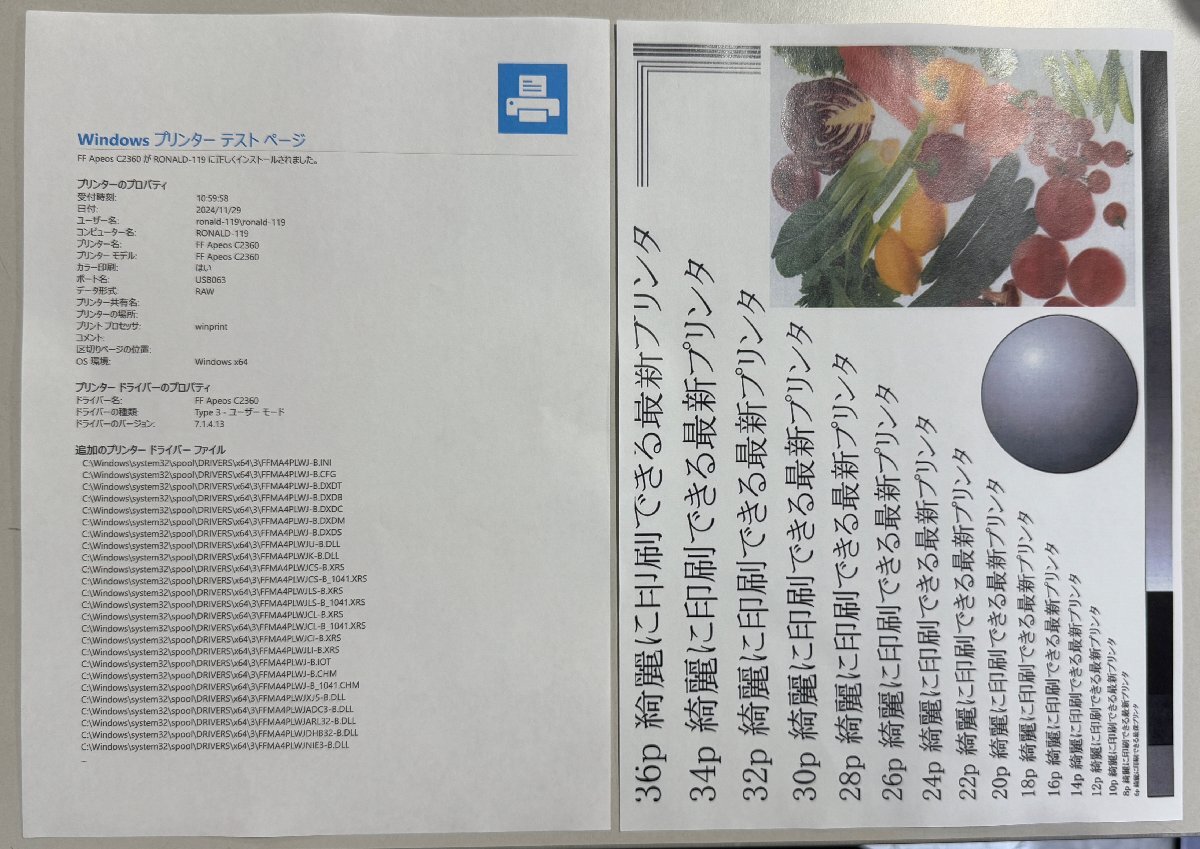 Windows プリンター テスト ページ
FF Apeos C2360 が RONALD-119 に正しくインストールされました。
プリンターのプロパティ
受付時刻: 10:59:58
日付: 2024/11/29
ユーザー名: ronald-119\ronald-119
コンピューター名: RONALD-119
プリンター名: FF Apeos C2360
プリンター モデル: FF Apeos C2360
カラー印刷: はい
ポート名: USB063
データ形式: RAW
プリンター共有名:
プリンターの場所:
プリント プロセッサ: winprint
コメント:
区切りページの位置:
OS 環境: Windows x64
プリンター ドライバーのプロパティ
ドライバー名: FF Apeos C2360
ドライバーの種類: Type 3 - ユーザー モード
ドライバーのバージョン: 7.1.4.13
追加のプリンター ドライバー ファイル
C:\Windows\system32\spool\DRIVERS\x64\3\FFMA4PLWJ-B.INI
C:\Windows\system32\spool\DRIVERS\x64\3\FFMA4PLWJ-B.CFG
C:\Windows\system32\spool\DRIVERS\x64\3\FFMA4PLWJ-B.DXDT
C:\Windows\system32\spool\DRIVERS\x64\3\FFMA4PLWJ-B.DXDB
C:\Windows\system32\spool\DRIVERS\x64\3\FFMA4PLWJ-B.DXDC
C:\Windows\system32\spool\DRIVERS\x64\3\FFMA4PLWJ-B.DXDM
C:\Windows\system32\spool\DRIVERS\x64\3\FFMA4PLWJ-B.DXDS
C:\Windows\system32\spool\DRIVERS\x64\3\FFMA4PLWJU-B.DLL
C:\Windows\system32\spool\DRIVERS\x64\3\FFMA4PLWJK-B.DLL
C:\Windows\system32\spool\DRIVERS\x64\3\FFMA4PLWJCS-B.XRS
C:\Windows\system32\spool\DRIVERS\x64\3\FFMA4PLWJCS-B_1041.XRS
C:\Windows\system32\spool\DRIVERS\x64\3\FFMA4PLWJLS-B.XRS
C:\Windows\system32\spool\DRIVERS\x64\3\FFMA4PLWJLS-B_1041.XRS
C:\Windows\system32\spool\DRIVERS\x64\3\FFMA4PLWJCL-B.XRS
C:\Windows\system32\spool\DRIVERS\x64\3\FFMA4PLWJCL-B_1041.XRS
C:\Windows\system32\spool\DRIVERS\x64\3\FFMA4PLWJCI-B.XRS
C:\Windows\system32\spool\DRIVERS\x64\3\FFMA4PLWJLI-B.XRS
C:\Windows\system32\spool\DRIVERS\x64\3\FFMA4PLWJ-B.IOT
C:\Windows\system32\spool\DRIVERS\x64\3\FFMA4PLWJ-B.CHM
C:\Windows\system32\spool\DRIVERS\x64\3\FFMA4PLWJ-B_1041.CHM
C:\Windows\system32\spool\DRIVERS\x64\3\FFMA4PLWJXJS-B.DLL
C:\Windows\system32\spool\DRIVERS\x64\3\FFMA4PLWJADC3-B.DLL
C:\Windows\system32\spool\DRIVERS\x64\3\FFMA4PLWJARL32-B.DLL
C:\Windows\system32\spool\DRIVERS\x64\3\FFMA4PLWJDHB32-B.DLL
C:\Windows\system32\spool\DRIVERS\x64\3\FFMA4PLWJNIE3-B.DLL
...
36p 綺麗に印刷できる最新プリンタ
34p 綺麗に印刷できる最新プリンタ
32p 綺麗に印刷できる最新プリンタ
30p 綺麗に印刷できる最新プリンタ
28p 綺麗に印刷できる最新プリンタ
26p 綺麗に印刷できる最新プリンタ
24p 綺麗に印刷できる最新プリンタ
22p 綺麗に印刷できる最新プリンタ
20p 綺麗に印刷できる最新プリンタ
18p 綺麗に印刷できる最新プリンタ
16p 綺麗に印刷できる最新プリンタ
14p 綺麗に印刷できる最新プリンタ
12p 綺麗に印刷できる最新プリンタ
10p 綺麗に印刷できる最新プリンタ
8p 綺麗に印刷できる最新プリンタ
6p 綺麗に印刷できる最新プリンタ